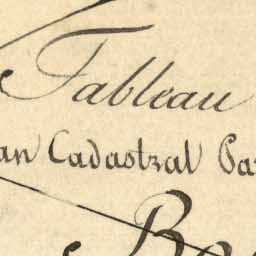 Tableau
an Cadastral Pa